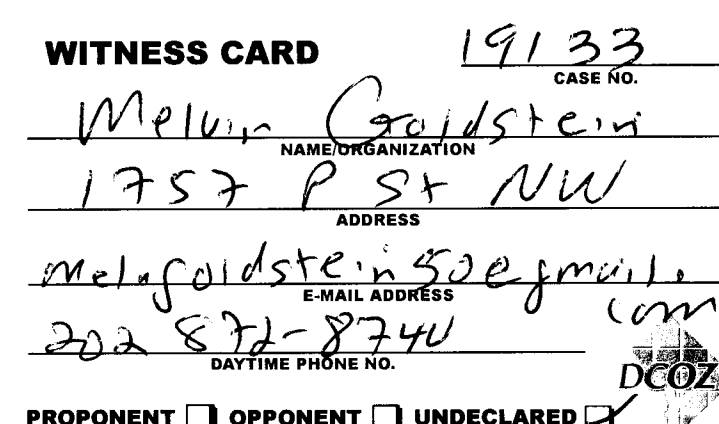 WITNESS CARD
19133
CASE NO.
Melvin Goldstein
NAME/ORGANIZATION
1757 P St NW
ADDRESS
melngoldstein50@gmail.com
E-MAIL ADDRESS
202 872-8740
DAYTIME PHONE NO.
DCOZ
PROPONENT ☐ OPPONENT ☐ UNDECLARED ☑